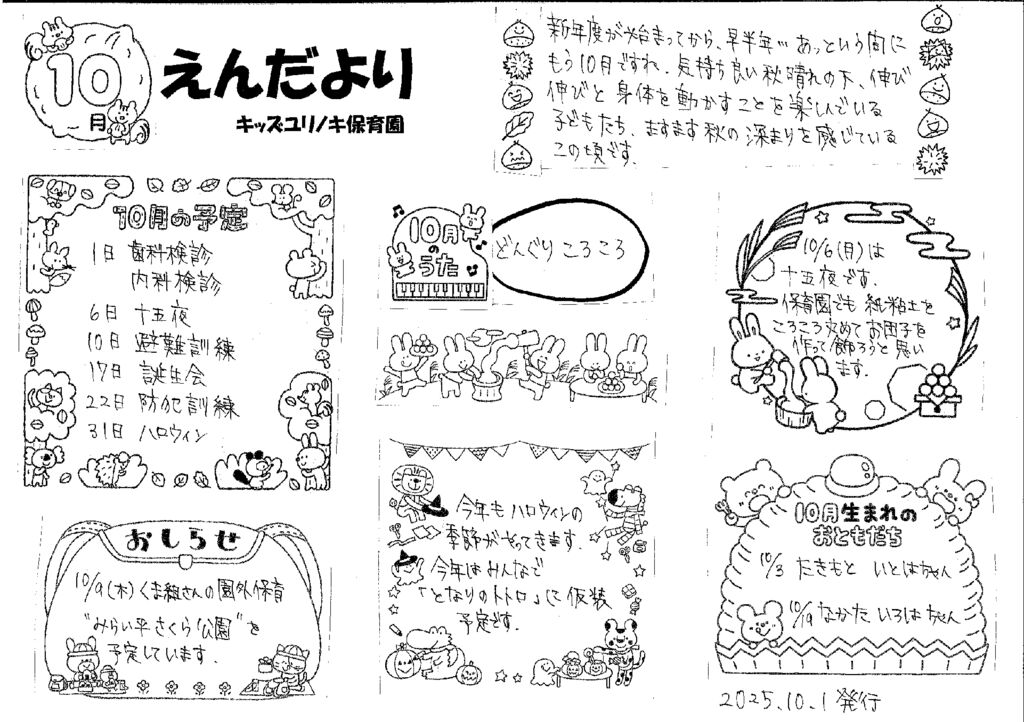 10
月
えんだより
キッズユリノキ保育園
新年度が始まってから、早半年… あっという間に
もう10月ですね。気持ち良い秋晴れの下、伸び
伸びと身体を動かすことを楽しんでいる
子どもたち。ますます秋の深まりを感じている
この頃です。
10月の予定
1日 歯科検診
内科検診
6日 十五夜
10日 避難訓練
17日 誕生会
22日 防犯訓練
31日 ハロウィン
10月
の
うた
どんぐりころころ
10/6(月)は
十五夜です。
保育園でも紙粘土を
ころころ丸めてお団子を
作って飾ろうと思い
ます。
おしらせ
10/9(木)くま組さんの園外保育
"みらい平さくら公園"を
予定しています。
今年もハロウィンの
季節がやってきます。
今年はみんなで
「となりのトトロ」に仮装
予定です。
10月生まれの
おともだち
10/3 たきもと いとはちゃん
10/19 なかた いろはちゃん
2025.10.1発行